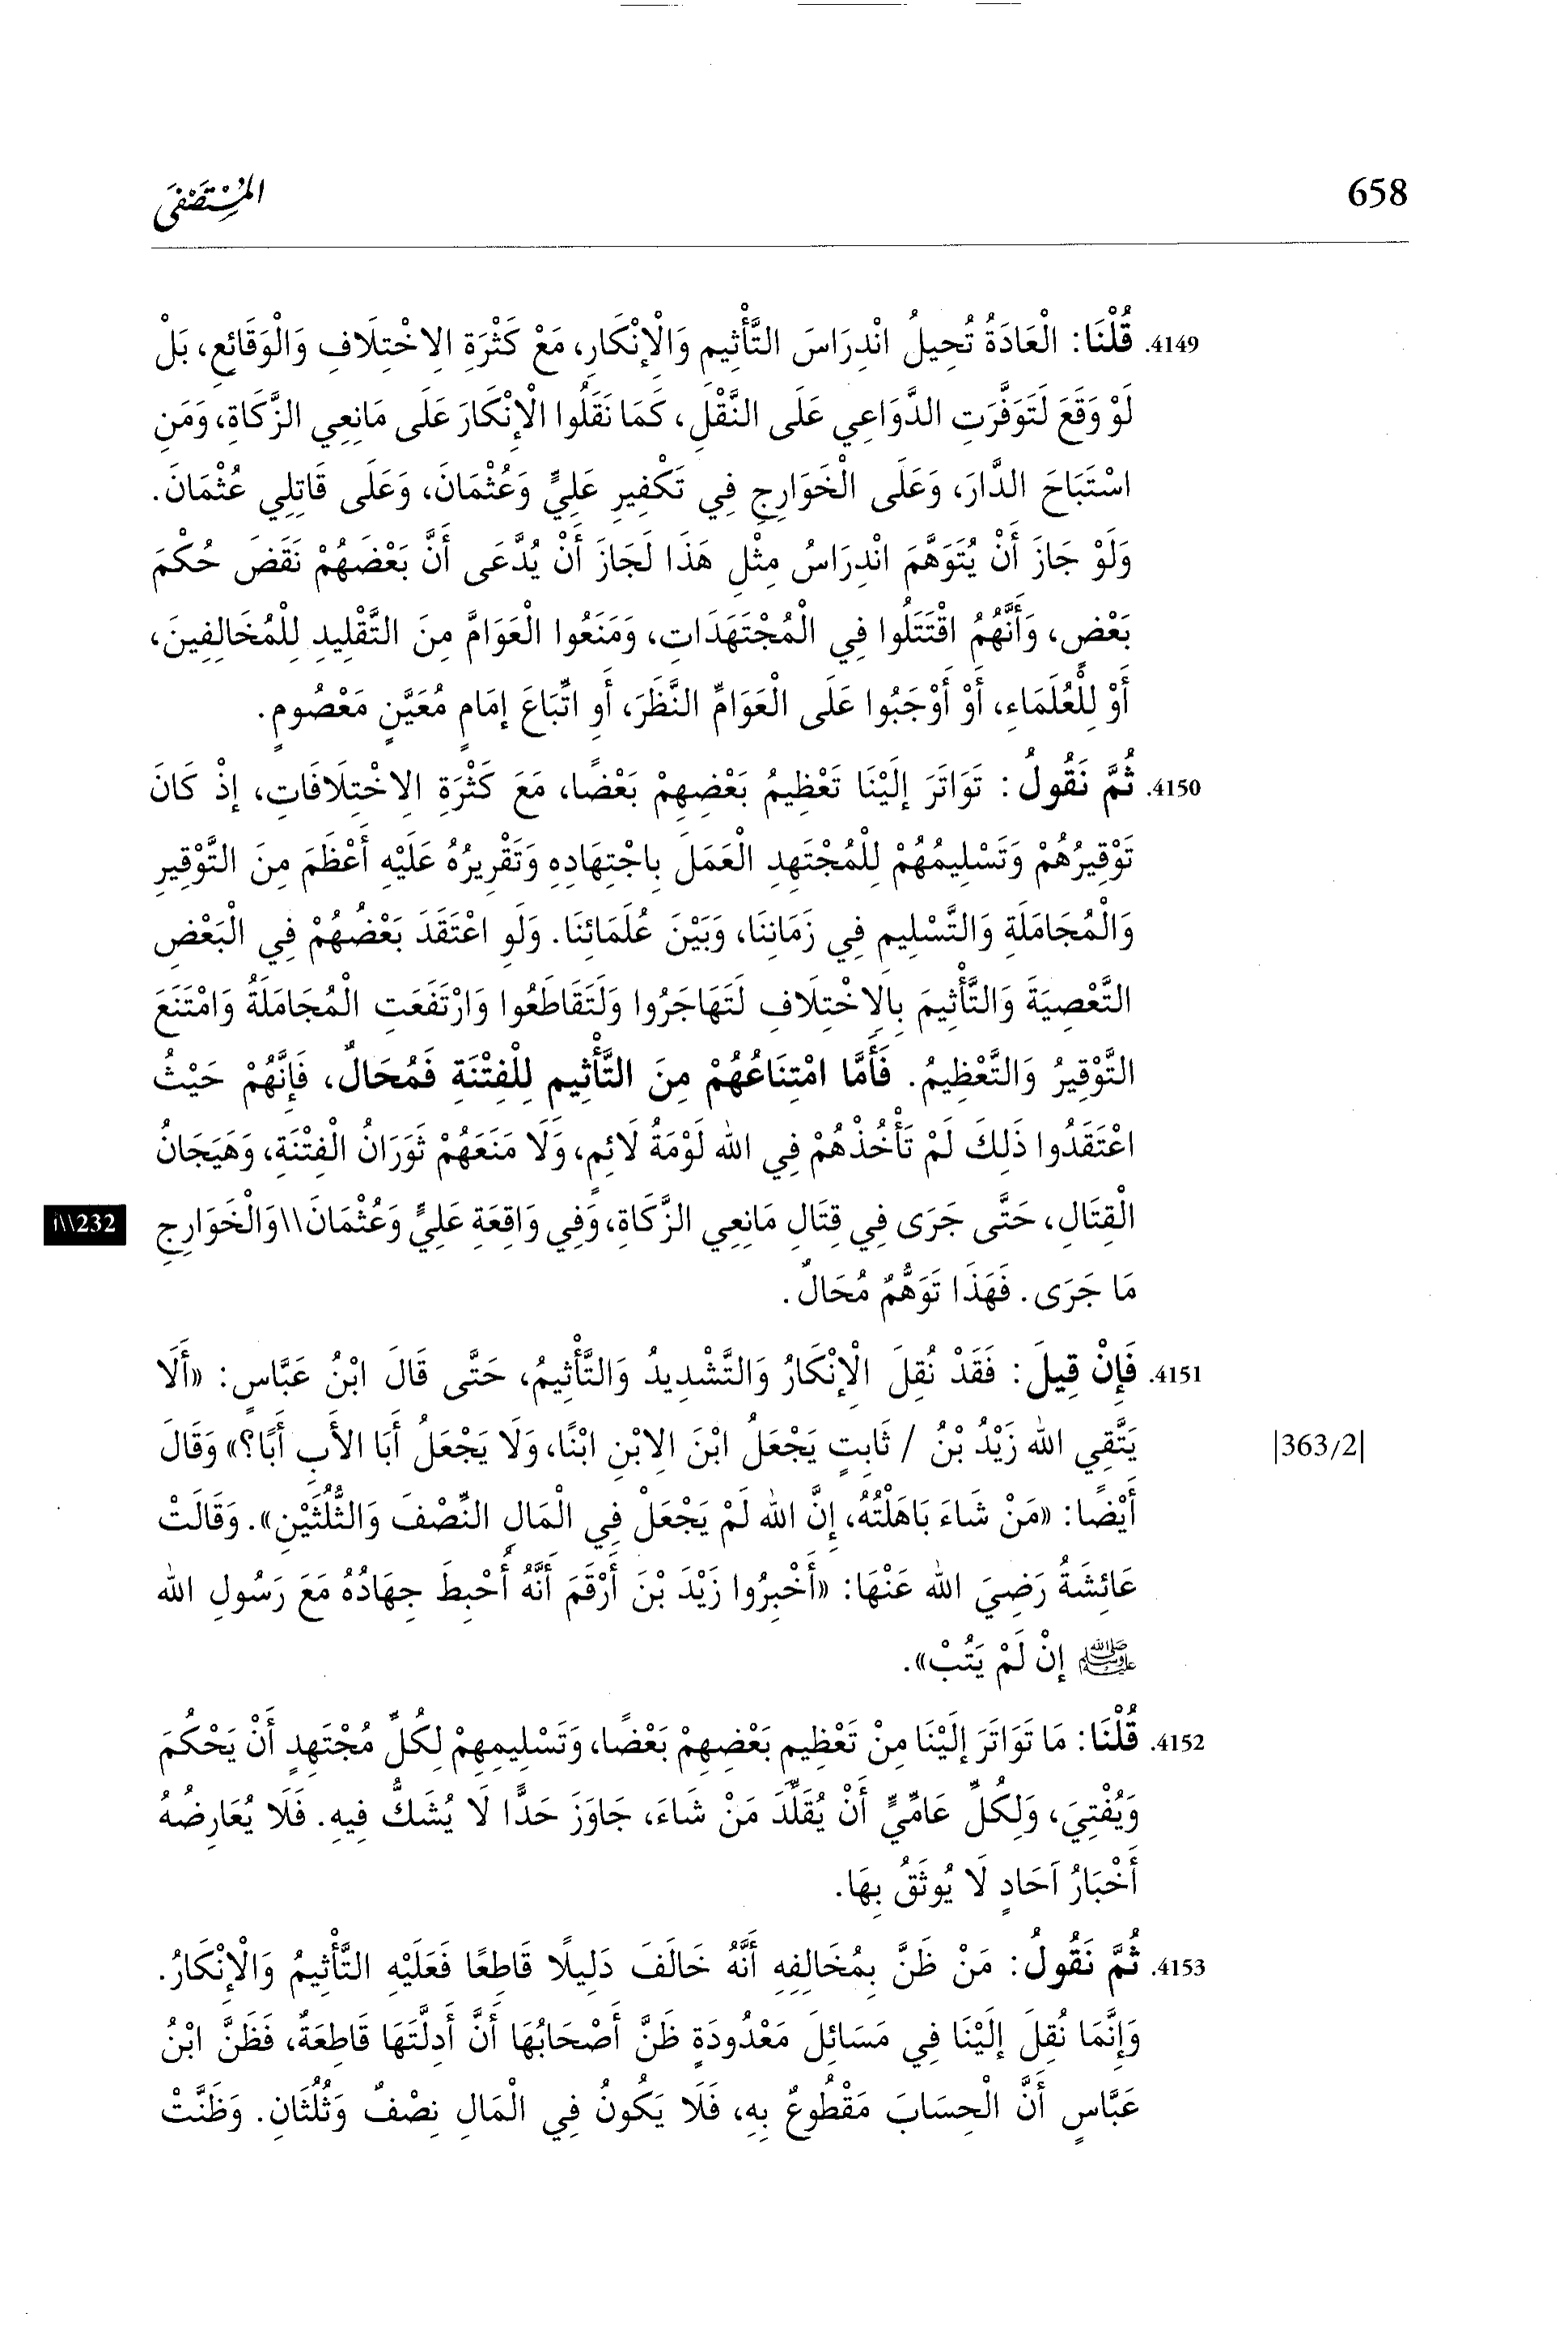 658
المُسْتَصْفَى
4149. قُلْنَا: الْعَادَةُ تُحِيلُ انْدِرَاسَ التَّأْثِيمِ وَالْإِنْكَارِ، مَعْ كَثْرَةِ الِاخْتِلَافِ وَالْوَقَائِعِ، بَلْ
لَوْ وَقَعَ لَتَوَفَّرَتِ الدَّوَاعِي عَلَى النَّقْلِ، كَمَا نَقَلُوا الْإِنْكَارَ عَلَى مَانِعِي الزَّكَاةِ، وَمَنِ
اسْتَبَاحَ الدَّارَ، وَعَلَى الْخَوَارِجِ فِي تَكْفِيرِ عَلِيٍّ وَعُثْمَانَ، وَعَلَى قَاتِلِي عُثْمَانَ.
وَلَوْ جَازَ أَنْ يُتَوَهَّمَ انْدِرَاسُ مِثْلِ هَذَا لَجَازَ أَنْ يُدَّعَى أَنَّ بَعْضَهُمْ نَقَضَ حُكْمَ
بَعْضٍ، وَأَنَّهُمُ اقْتَتَلُوا فِي الْمُجْتَهَدَاتِ، وَمَنَعُوا الْعَوَامَّ مِنَ التَّقْلِيدِ لِلْمُخَالِفِينَ،
أَوْ لِلْعُلَمَاءِ، أَوْ أَوْجَبُوا عَلَى الْعَوَامِّ النَّظَرَ، أَوِ اتِّبَاعَ إِمَامٍ مُعَيَّنٍ مَعْصُومٍ.
4150. ثُمَّ نَقُولُ: تَوَاتَرَ إِلَيْنَا تَعْظِيمُ بَعْضِهِمْ بَعْضًا، مَعَ كَثْرَةِ الِاخْتِلَافَاتِ، إِذْ كَانَ
تَوْقِيرُهُمْ وَتَسْلِيمُهُمْ لِلْمُجْتَهِدِ الْعَمَلَ بِاجْتِهَادِهِ وَتَقْرِيرُهُ عَلَيْهِ أَعْظَمَ مِنَ التَّوْقِيرِ
وَالْمُجَامَلَةِ وَالتَّسْلِيمِ فِي زَمَانِنَا، وَبَيْنَ عُلَمَائِنَا. وَلَوِ اعْتَقَدَ بَعْضُهُمْ فِي الْبَعْضِ
التَّعْصِيَةَ وَالتَّأْثِيمَ بِالِاخْتِلَافِ لَتَهَاجَرُوا وَلَتَقَاطَعُوا وَارْتَفَعَتِ الْمُجَامَلَةُ وَامْتَنَعَ
التَّوْقِيرُ وَالتَّعْظِيمُ. فَأَمَّا امْتِنَاعُهُمْ مِنَ التَّأْثِيمِ لِلْفِتْنَةِ فَمُحَالٌ، فَإِنَّهُمْ حَيْثُ
اعْتَقَدُوا ذَلِكَ لَمْ تَأْخُذْهُمْ فِي الله لَوْمَةُ لَائِمٍ، وَلَا مَنَعَهُمْ ثَوَرَانُ الْفِتْنَةِ، وَهَيَجَانُ
الْقِتَالِ، حَتَّى جَرَى فِي قِتَالِ مَانِعِي الزَّكَاةِ، وَفِي وَاقِعَةِ عَلِيٍّ وَعُثْمَانَ\\وَالْخَوَارِجِ
232\\أ
مَا جَرَى. فَهَذَا تَوَهُّمٌ مُحَالٌ.
4151. فَإِنْ قِيلَ: فَقَدْ نُقِلَ الْإِنْكَارُ وَالتَّشْدِيدُ وَالتَّأْثِيمُ، حَتَّى قَالَ ابْنُ عَبَّاسٍ: «أَلَا
يَتَّقِي الله زَيْدُ بْنُ / ثَابِتٍ يَجْعَلُ ابْنَ الِابْنِ ابْنًا، وَلَا يَجْعَلُ أَبَا الأَبِ أَبًا؟» وَقَالَ
|363/2|
أَيْضًا: «مَنْ شَاءَ بَاهَلْتُهُ، إِنَّ الله لَمْ يَجْعَلْ فِي الْمَالِ النِّصْفَ وَالثُّلُثَيْنِ». وَقَالَتْ
عَائِشَةُ رَضِيَ الله عَنْهَا: «أَخْبِرُوا زَيْدَ بْنَ أَرْقَمَ أَنَّهُ أُحْبِطَ جِهَادُهُ مَعَ رَسُولِ الله
ﷺ إِنْ لَمْ يَتُبْ».
4152. قُلْنَا: مَا تَوَاتَرَ إِلَيْنَا مِنْ تَعْظِيمِ بَعْضِهِمْ بَعْضًا، وَتَسْلِيمِهِمْ لِكُلِّ مُجْتَهِدٍ أَنْ يَحْكُمَ
وَيُفْتِيَ، وَلِكُلِّ عَامِّيٍّ أَنْ يُقَلِّدَ مَنْ شَاءَ، جَاوَزَ حَدًّا لَا يُشَكُّ فِيهِ. فَلَا يُعَارِضُهُ
أَخْبَارُ آحَادٍ لَا يُوثَقُ بِهَا.
4153. ثُمَّ نَقُولُ: مَنْ ظَنَّ بِمُخَالِفِهِ أَنَّهُ خَالَفَ دَلِيلًا قَاطِعًا فَعَلَيْهِ التَّأْثِيمُ وَالْإِنْكَارُ.
وَإِنَّمَا نُقِلَ إِلَيْنَا فِي مَسَائِلَ مَعْدُودَةٍ ظَنَّ أَصْحَابُهَا أَنَّ أَدِلَّتَهَا قَاطِعَةٌ، فَظَنَّ ابْنُ
عَبَّاسٍ أَنَّ الْحِسَابَ مَقْطُوعٌ بِهِ، فَلَا يَكُونُ فِي الْمَالِ نِصْفٌ وَثُلُثَانِ. وَظَنَّتْ